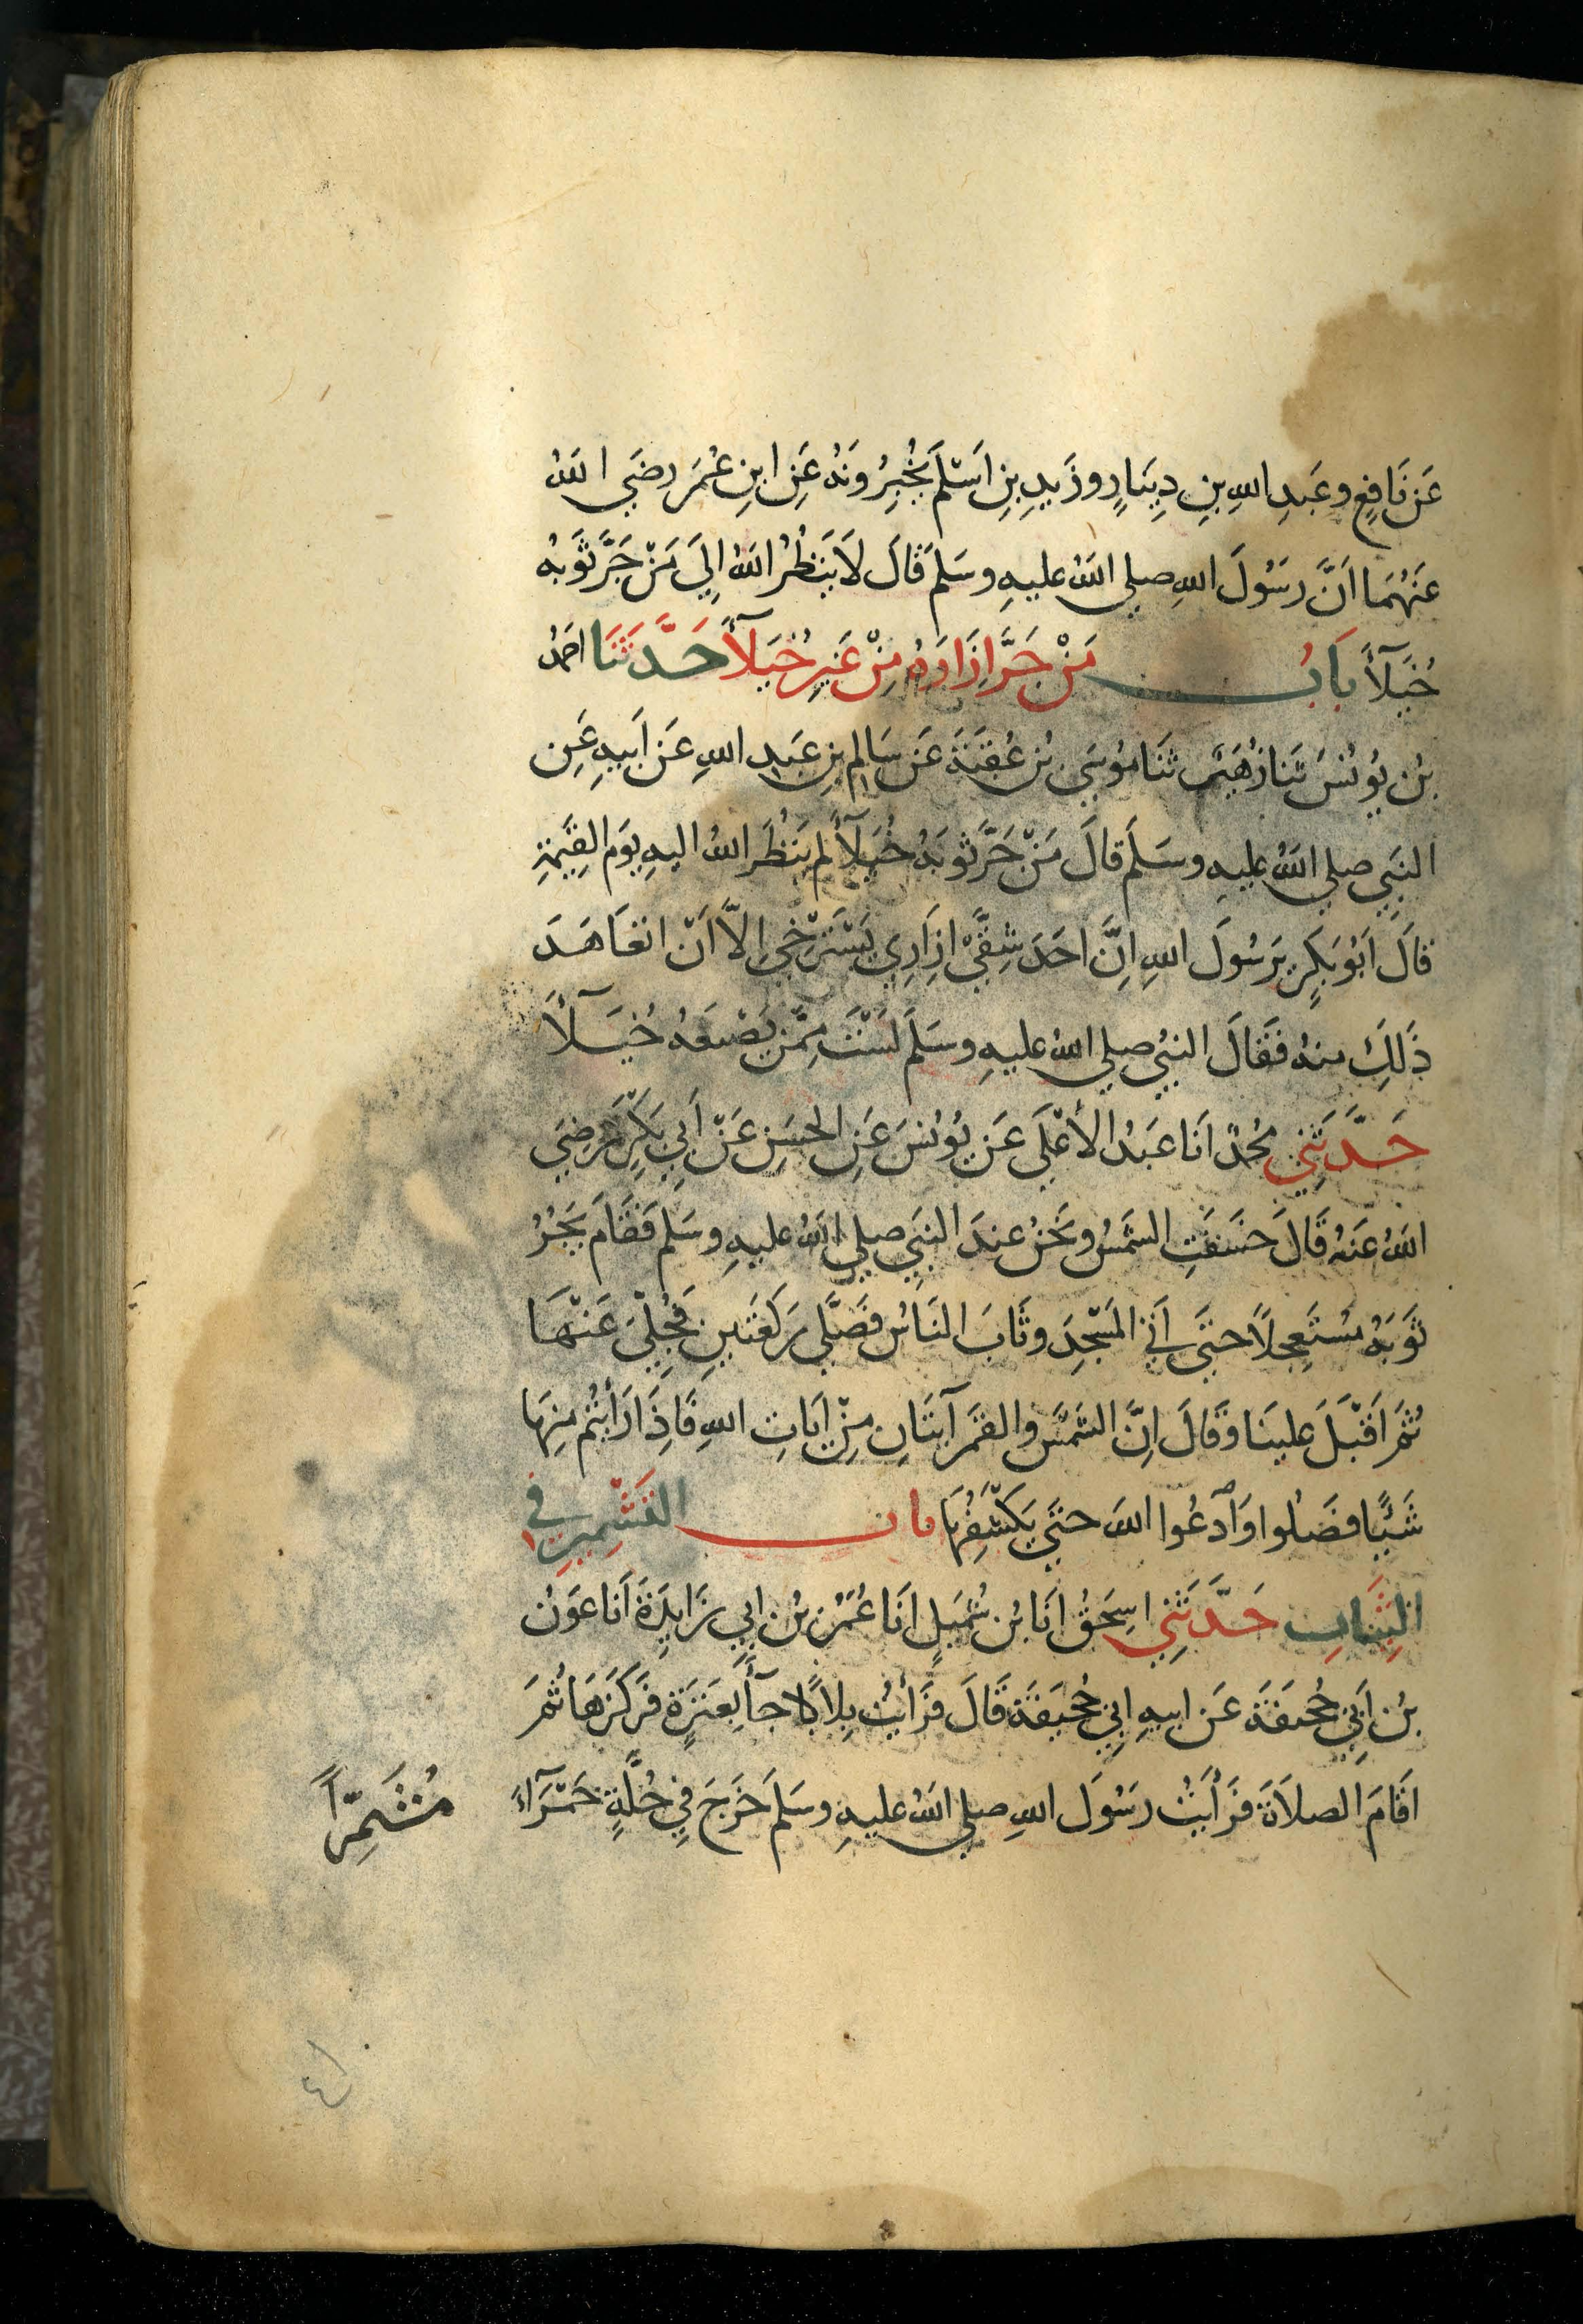 عَن نَافِعٍ وعَبدِ اللهِ بنِ دِينَارٍ وزَيدِ بنِ اَسْلَمَ يُخْبِرُونَهُ عَنِ ابنِ عُمَرَ رضَي اللهُ
عَنْهُمَا اَنَّ رسُولَ اللهِ صلي اللهُ عليهِ وسَلمَ قَالَ لَا يَنظُرُ اللهُ اِلَي مَنْ جَرَّ ثَوبَهُ
خُيَلآءً بَابُ مَنْ جَرَّ اِزَارَهُ مِنْ غَيرِ خُيَلآءً حَدَّثَنَا احمدُ
بنُ يُونُسَ ثنَا زُهَيرٌ ثنَا مُوسَي بنُ عُقبَةَ عَن سَالِمِ بنِ عَبدِ اللهِ عَن اَبِيهِ عَنِ
النبَيِ صلي اللهُ عليهِ وسَلَمَ قَالَ مَنْ جَرَّ ثَوبَهُ خُيَلآءً لم يَنظُرِ اللهُ اليهِ يَومَ القِيمَةِ
قَالَ اَبُو بَكرٍ يَرسُولَ اللهِ اِنَّ اَحَدَ شِقَّيْ اِزَارِي يَسْتَرْخي اِلاَّ اَنْ اتعَاهَدَ
ذَلِكَ منهُ فَقَالَ النبيُ صلي اللهُ عليهِ وسَلمَ لَسْتَ مِمَّن يَصْنَعُهُ خُيَلآءً
حَدَّثَنِي مُحمدٌ اَنَا عَبدُ الأَعْلَي عَن يُونُسَ عَنِ الحسَنِ عَنْ اَبِي بَكرَةَ رضِيَ
اللهُ عَنهُ قَالَ خسَفَتِ الشَمسُ ونَحنُ عِندَ النبَيِ صلي اللهُ عليهِ وسَلمَ فَقَامَ يَجُرُّ
ثَوبَهُ مُستَعجِلاً حتَي اَتَي المَسْجِدَ وثَابَ النَاسُ فَصَلَّي رَكعَتَينِ فَجُلِّيَ عَنْهَا
ثُمَ اَقْبَلَ علينَا وَقَالَ اِنَّ الشَمسَ والقمَرَ آيتَانِ مِنْ اَيَاتِ اللهِ فَاِذَا رَأيتُم مِنهَا
شَيئًا فصَلُوا وَادعُوا اللهَ حتَي يَكْشِفَهَا باب التَشْمِيرِ فِي
الثِيَابِ حَدَّثَنِي اسحَقُ انَا بنُ شُمَيلٍ انَا عُمَرُ بنُ ابِي زَايِدَةَ اَنَا عَونُ
بنُ اَبِي جُحَيفَةَ عَن ابيهِ ابِي جُحَيفَةَ قَالَ فَرَأيتُ بِلاَلاً جآءَ بِعَنَزَةٍ فرَكَزَهَا ثُمَ
اَقَامَ الصلاَةَ فرَأيتُ رسُولَ اللهِ صلي اللهُ عليهِ وسَلمَ خَرَجَ فِي حُلَّةٍ حَمْرَآءَ
مُشَمِّراً